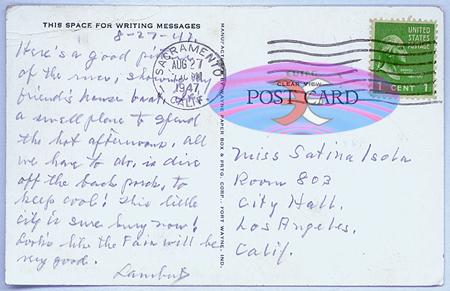 THIS SPACE FOR WRITING MESSAGES
8-27-47.
Here's a good
of the river, showing
friend's house boat,
a swell place to spend
the hot afternoons. all
we have to do, is dive
off the back porch, to
keep cool! This little
city is sure busy now!
Looks like the Fair will be
very good.
SACRAMENTO
AUG 27
1947
CALIF.
UNITED STATES POSTAGE
1 CENT 1
CLEAR VIEW
POST CARD
WAYNE PAPER BOX & PRTG. CORP., FORT WAYNE, IND.
Miss Satina Isola
Room 803
City Hall.
Los Angeles.
Calif.